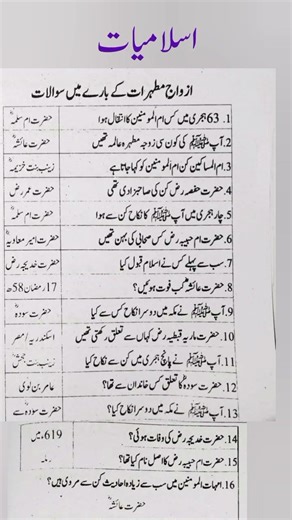 اسلامیات
ازواج مطہرات کے بارے میں سوالات
1. 63 ہجری میں کس ام المومنین کا انتقال ہوا حضرت ام سلمہؓ
2. آپ ﷺ کی کون سی زوجہ مطہرہ عالمہ تھیں حضرت عائشہؓ
3. ام المساکین کن ام المومنین کو کہا جاتا ہے زینب بنت خزیمہؓ
4. حضرت حفصہ رض کن کی صاحبزادی تھی حضرت عمر رض
5. چار ہجری میں آپ ﷺ کا نکاح کن سے ہوا حضرت ام سلمہؓ
6. حضرت ام حبیبہ رض کس صحابی کی بہن تھیں حضرت امیر معاویہؓ
7. سب سے پہلے کس نے اسلام قبول کیا حضرت خدیجہ رض
8. حضرت عائشہؓ کب فوت ہوئیں؟ 17 رمضان 58ھ
9. آپ ﷺ نے مکہ میں دوسرا نکاح کس سے کیا حضرت سودہؓ
10. حضرت ماریہ قبطیہ رض کہاں سے تعلق رکھتی تھیں اسکندریہ / مصر
11. آپ ﷺ نے پانچ ہجری میں کن سے نکاح کیا؟ زینب بنت جحشؓ
12. حضرت سودہؓ کا تعلق کس خاندان سے تھا؟ عامر بن لوی
13. آپ ﷺ نے مکہ میں دوسرا نکاح کیا؟ حضرت سودہؓ سے
14. حضرت خدیجہ رض کی وفات ہوئی؟ 619ء میں
15. حضرت ام حبیبہ رض کا اصل نام کیا تھا؟ رملہ
16. امہات المومنین میں سب سے زیادہ احادیث کن سے مروی ہیں؟
حضرت عائشہؓ